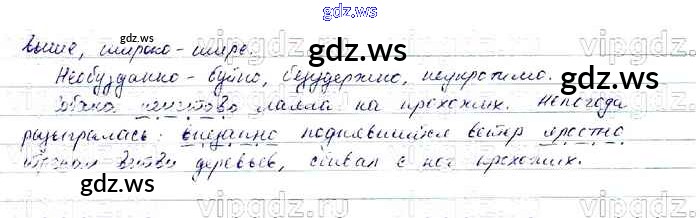 gdz.ws
выше, широко - шире.
gdz.ws
gdz.ws
Необузданно - буйно, безудержно, неукротимо.
Собака неистово лаяла на прохожих. Непогода
разыгралась: внезапно поднявшийся ветер яростно
ветви деревьев, сбивал с ног прохожих.
gdz.ws
gdz.ws
vipgdz.ru
vipgdz.ru